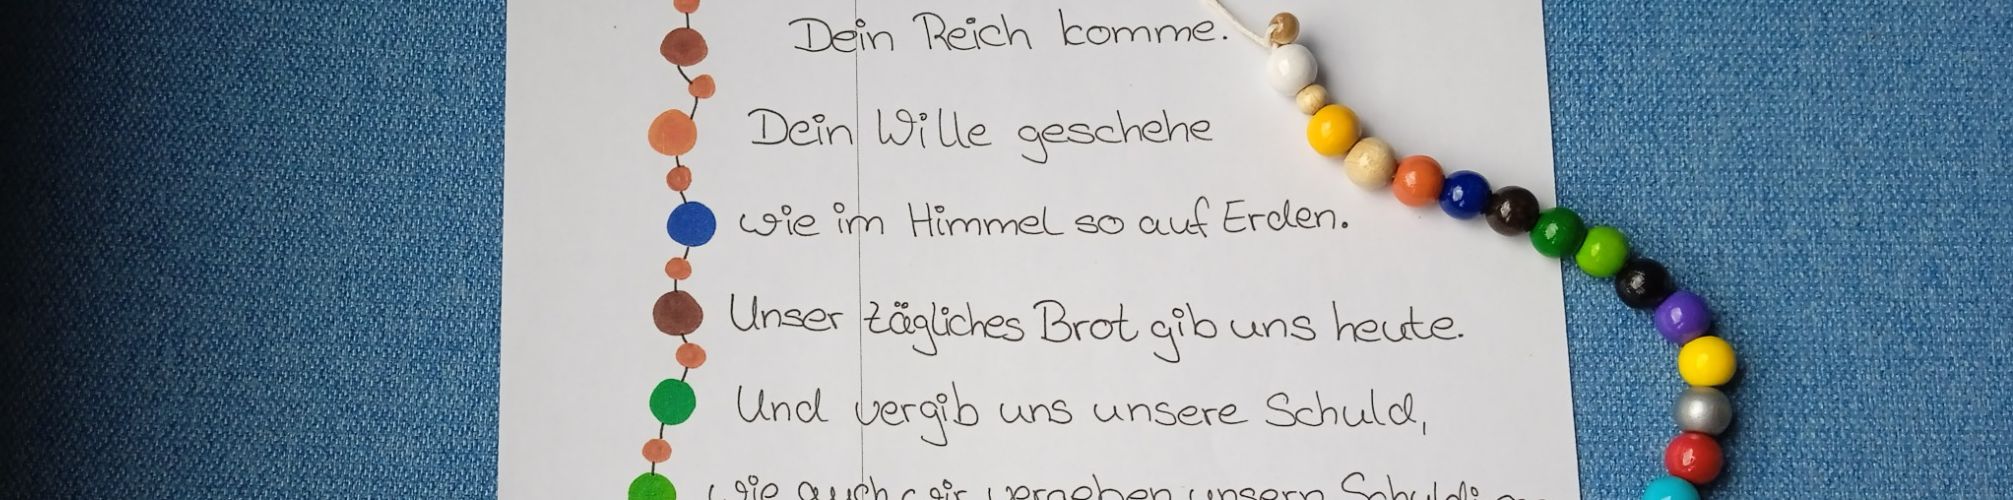 Dein Reich komme.
Dein Wille geschehe
wie im Himmel so auf Erden.
Unser tägliches Brot gib uns heute.
Und vergib uns unsere Schuld,
wie auch wir vergeben unsern